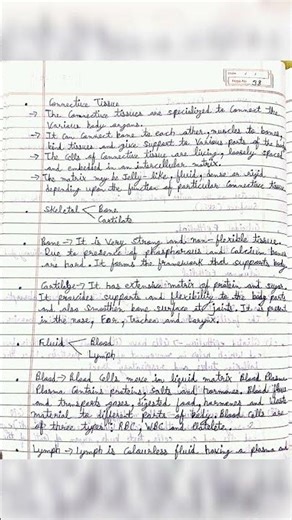 Date
Page No. 98
• Connective Tissue
→ The Connective tissues are specialized to connect the
Various body organs.
→ It can connect bone to each other, muscles to bones,
bind tissues and give support to various parts of the body
→ The Cells of Connective tissue are living, loosely spaced
and embedded in an intercellular matrix.
→ The matrix may be Jelly like, fluid, dense or rigid
depending upon the function of particular Connective tissue
• Skeletal < Bone
Cartilate
• Bone → It is Very strong and non-flexible tissue.
Due to presence of phosphorous and Calcium bones
are hard. It forms the framework that supports body
• Cartilage → It has extensive matrix of protein and sugar.
It provides supports and flexibility to the body parts
and also smoothen bone surface to joints. It is present
in the nose, Ear, Trachea and Larynx.
• Fluid < Blood
Lymph
• Blood → Blood Cells move in liquid matrix Blood Plasma
Plasma Contains proteins, Salts and hormones. Blood flows
and transports gases, digested food, hormones and Waste
material to different parts of body. Blood Cells are
of three types: RBC, WBC and Platelets.
• Lymph → Lymph is Colourless fluid having a plasma and